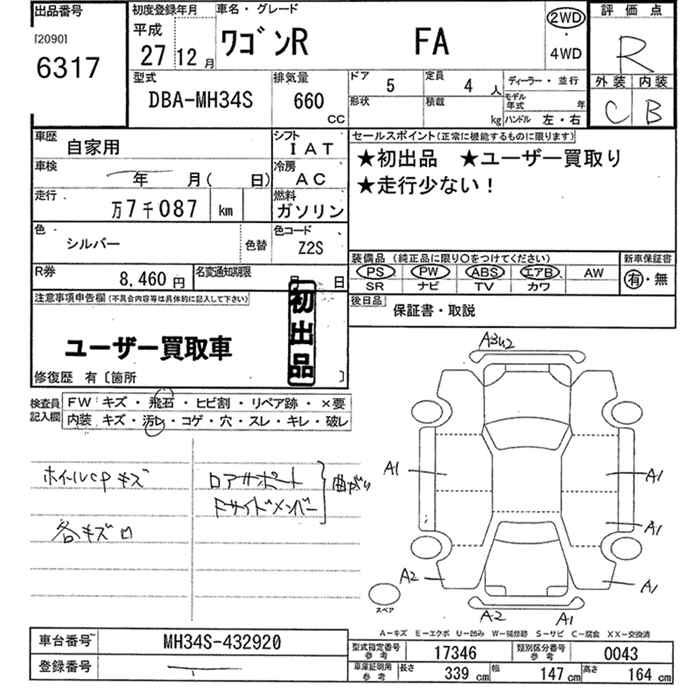 出品番号
[2090]
6317
初度登録年月
平成
27 12月
車名・グレード
ワゴンR FA
2WD
・
4WD
評価点
R
外装 内装
C B
型式
DBA-MH34S
排気量
660
CC
ドア 5
定員 4 人
形状
積載 kg
ディーラー・並行
モデル年式 年
ハンドル 左・右
車歴 自家用
シフト IAT
車検 年 月( 日)
冷房 AC
走行 万7千087 km
燃料 ガソリン
色 シルバー 色替
色コード Z2S
R券 8,460円
名変通知期限 月 日
セールスポイント(正常に機能するものに限ります)
★初出品 ★ユーザー買取り
★走行少ない!
装備品(純正品に限り○をつけてください)
PS PW ABS エアB AW
SR ナビ TV カワ
新車保証書
有・無
後日品 保証書・取説
注意事項申告欄(不具合内容等は具体的に記入して下さい)
ユーザー買取車
初出品
修復歴 有〔箇所 〕
検査員記入欄
FW キズ・飛石・ヒビ割・リペア跡・×要
内装 キズ・汚れ・コゲ・穴・スレ・キレ・破レ
ホイルCPキズ
各キズ凹
ロアサポート
Fサイドメンバー
曲がり
A3U2
A1
A1
A1
A2
A1
A2
A1
スペア
A-キズ E-エクボ U-凹み W-補修跡 S-サビ C-腐食 XX-交換済
車台番号 MH34S-432920
登録番号
型式指定番号 参考 17346
類別区分番号 参考 0043
車庫証明用 参考 長さ 339 cm 幅 147 cm 高さ 164 cm